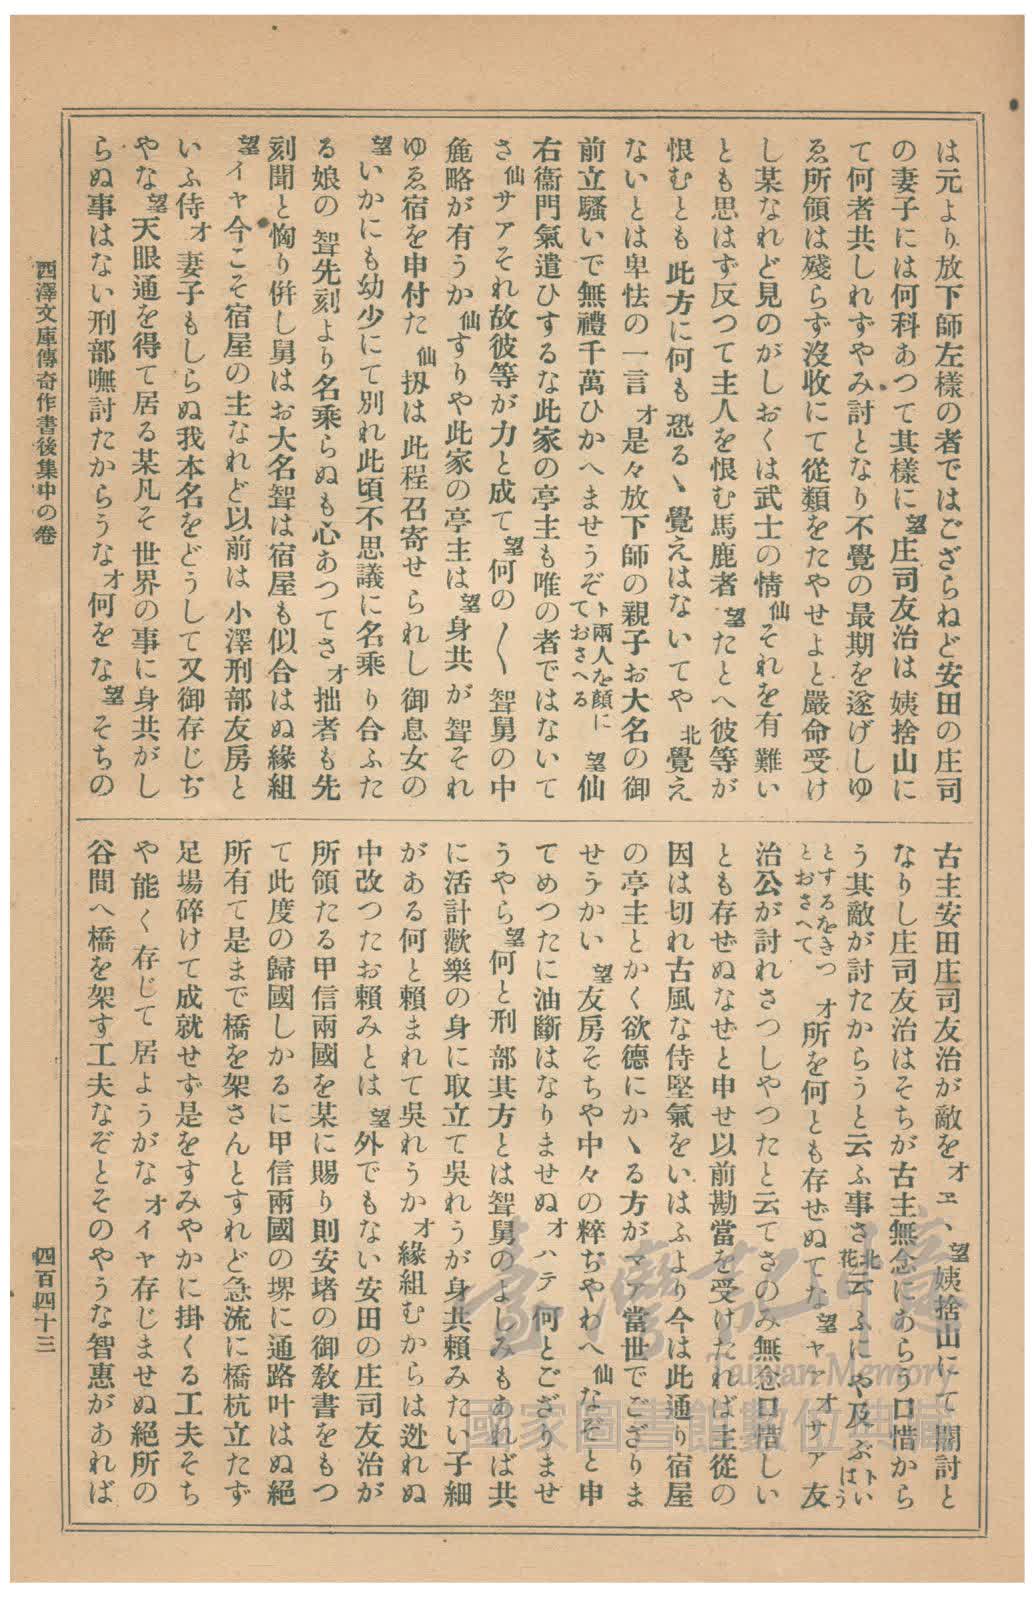 は元より放下師左樣の者ではござらねど安田の庄司
の妻子には何科あつて其樣に望庄司友治は姨捨山に
て何者共しれずやみ討となり不覺の最期を遂げしゆ
ゑ所領は殘らず沒收にて從類をたやせよと嚴命受け
し某なれど見のがしおくは武士の情仙それを有難い
とも思はず反つて主人を恨む馬鹿者望たとへ彼等が
恨むとも此方に何も恐るゝ覺えはないてや北覺え
ないとは卑怯の一言オ是々放下師の親子お大名の御
前立騷いで無禮千萬ひかへませうぞト兩人を顏に
ておさへる望仙
右衞門氣遣ひするな此家の亭主も唯の者ではないて
さ仙サアそれ故彼等が力と成て望何の〱聟舅の中
麁略が有うか仙すりや此家の亭主は望身共が聟それ
ゆゑ宿を申付た仙扨は此程召寄せられし御息女の
望いかにも幼少にて別れ此頃不思議に名乘り合ふた
る娘の聟先刻より名乘らぬも心あつてさオ拙者も先
刻聞と恟り併し舅はお大名聟は宿屋も似合はぬ緣組
望イャ今こそ宿屋の主なれど以前は小澤刑部友房と
いふ侍オ妻子もしらぬ我本名をどうして又御存じぢ
やな望天眼通を得て居る某凡そ世界の事に身共がし
らぬ事はない刑部嘸討たからうなオ何をな望そちの
古主安田庄司友治が敵をオヱ、望姨捨山にて闇討と
なりし庄司友治はそちが古主無念にあらう口惜から
う其敵が討たからうと云ふ事さ北花云ふにや及ぶトいはう
とするをきつ
とおさへてオ所を何とも存ぜぬてな望ヤァオサァ友
治公が討れさつしやつたと云てさのみ無念口惜しい
とも存ぜぬなぜと申せ以前勘當を受けたれば主從の
因は切れ古風な侍堅氣をいはふより今は此通り宿屋
の亭主とかく欲德にかゝる方がマァ當世でござりま
せうかい望友房そちや中々の粹ぢやわへ仙なぞと申
てめつたに油斷はなりませぬオハテ何とござりませ
うやら望何と刑部其方とは聟舅のよしみもあれば共
に活計歡樂の身に取立て吳れうが身共賴みたい子細
がある何と賴まれて吳れうかオ緣組むからは迯れぬ
中改つたお賴みとは望外でもない安田の庄司友治が
所領たる甲信兩國を某に賜り則安堵の御敎書をもつ
て此度の歸國しかるに甲信兩國の堺に通路叶はぬ絕
所有て是まで橋を架さんとすれど急流に橋杭立たず
足場碎けて成就せず是をすみやかに掛くる工夫そち
や能く存じて居ようがなオイャ存じませぬ絕所の
谷間へ橋を架す工夫なぞとそのやうな智惠があれば
西澤文庫傳奇作書後集中の卷
四百四十三
臺灣記憶
Taiwan Memory
國家圖書館數位典藏